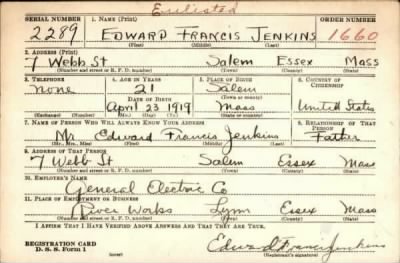 Enlisted
SERIAL NUMBER 1. NAME (Print) ORDER NUMBER
2289 EDWARD FRANCIS JENKINS 1660
(First) (Middle) (Last)
2. ADDRESS (Print)
7 Webb St Salem Essex Mass
(Number and street or R. F. D. number) (Town) (County) (State)
3. TELEPHONE 4. AGE IN YEARS 5. PLACE OF BIRTH 6. COUNTRY OF CITIZENSHIP
none 21 Salem
DATE OF BIRTH (Town or county)
April 23 1919 Mass United States
(Exchange) (Number) (Mo.) (Day) (Yr.) (State or country)
7. NAME OF PERSON WHO WILL ALWAYS KNOW YOUR ADDRESS 8. RELATIONSHIP OF THAT PERSON
Mr. Edward Francis Jenkins Father
(Mr., Mrs., Miss) (First) (Middle) (Last)
9. ADDRESS OF THAT PERSON
7 Webb St Salem Essex Mass
(Number and street or R. F. D. number) (Town) (County) (State)
10. EMPLOYER'S NAME
General Electric Co
11. PLACE OF EMPLOYMENT OR BUSINESS
River Works Lynn Essex Mass
(Number and street or R. F. D. number) (Town) (County) (State)
I AFFIRM THAT I HAVE VERIFIED ABOVE ANSWERS AND THAT THEY ARE TRUE.
REGISTRATION CARD
D. S. S. Form 1 Edward Francis Jenkins
(over) (Registrant's signature)